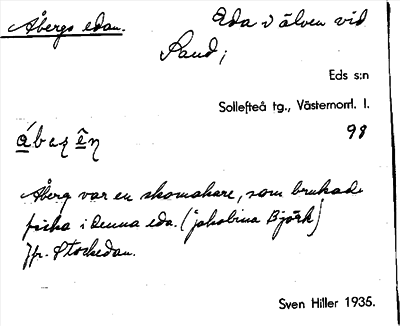 Åbergs edan.
Eda i älven vid
Sand;
Eds s:n
Sollefteå tg., Västernorrl. l.
98
Åberg var en skomakare, som brukade
fiska i denna eda. (Jakobina Björk)
Jfr. Stockedan.
Sven Hiller 1935.